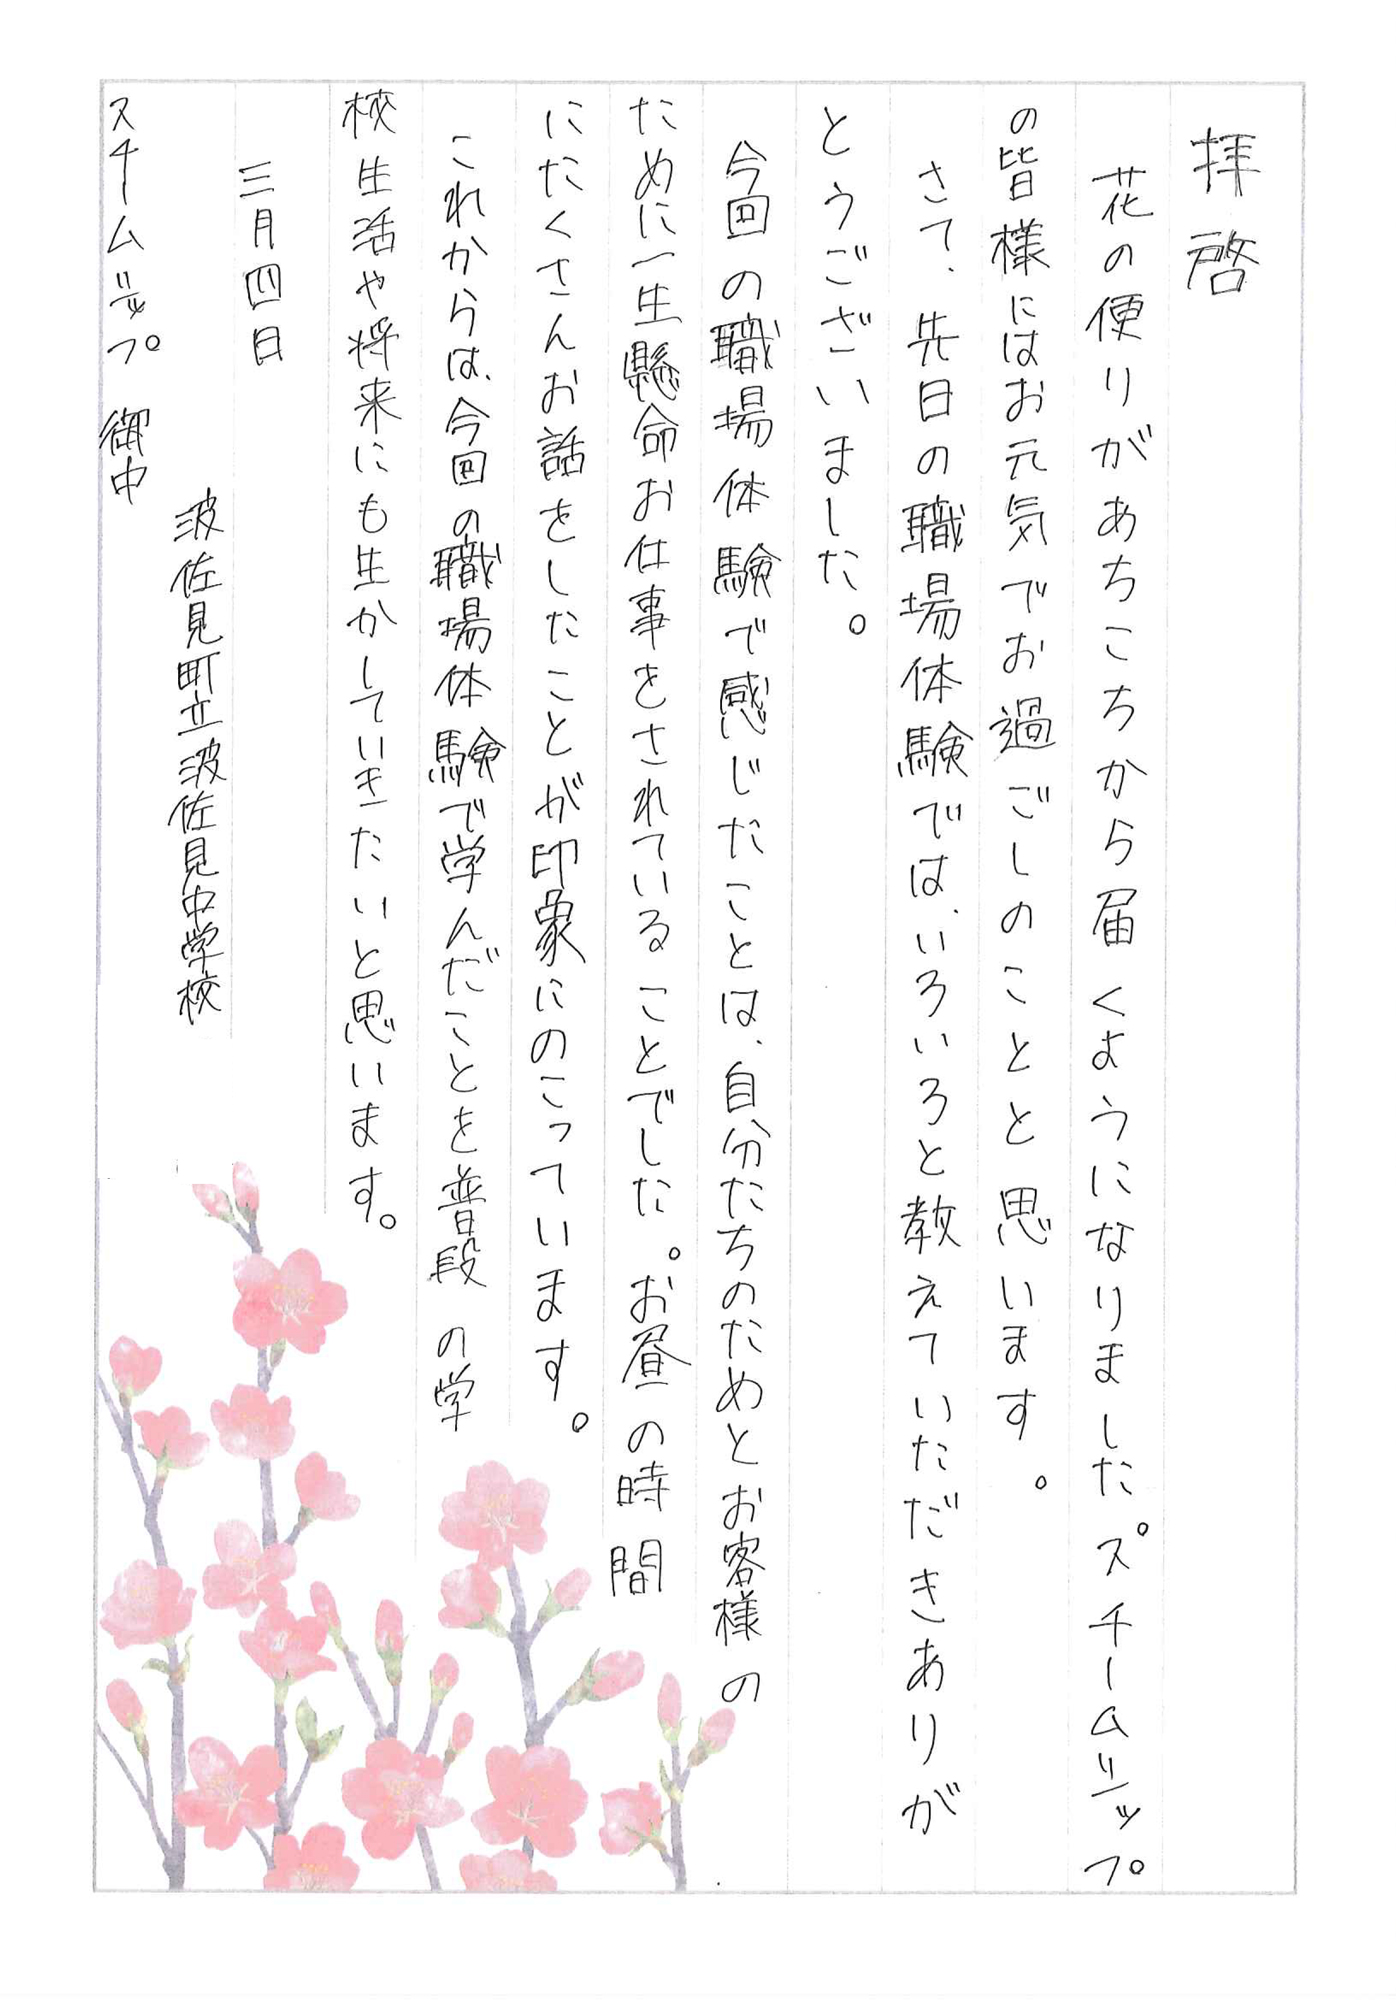 拝啓
花の便りがあちこちから届くようになりました。スチームシップ
の皆様にはお元気でお過ごしのことと思います。
さて、先日の職場体験では、いろいろと教えていただきありが
とうございました。
今回の職場体験で感じたことは、自分たちのためとお客様の
ために一生懸命お仕事をされていることでした。お昼の時間
にたくさんお話をしたことが印象にのこっています。
これからは、今回の職場体験で学んだことを普段の学
校生活や将来にも生かしていきたいと思います。
三月四日
波佐見町立波佐見中学校
スチームシップ 御中